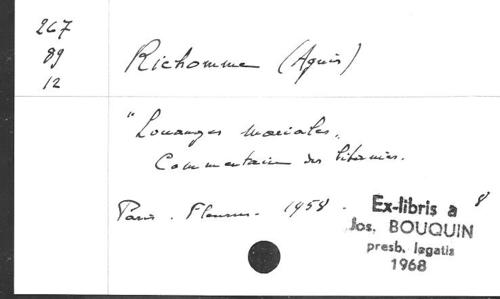 267
89
12
Richomme (Agnès)
"Louanges mariales"
Commentaire des litanies.
Paris. Fleurus. 1958. 8
Ex-libris a
Jos. BOUQUIN
presb. legatis
1968